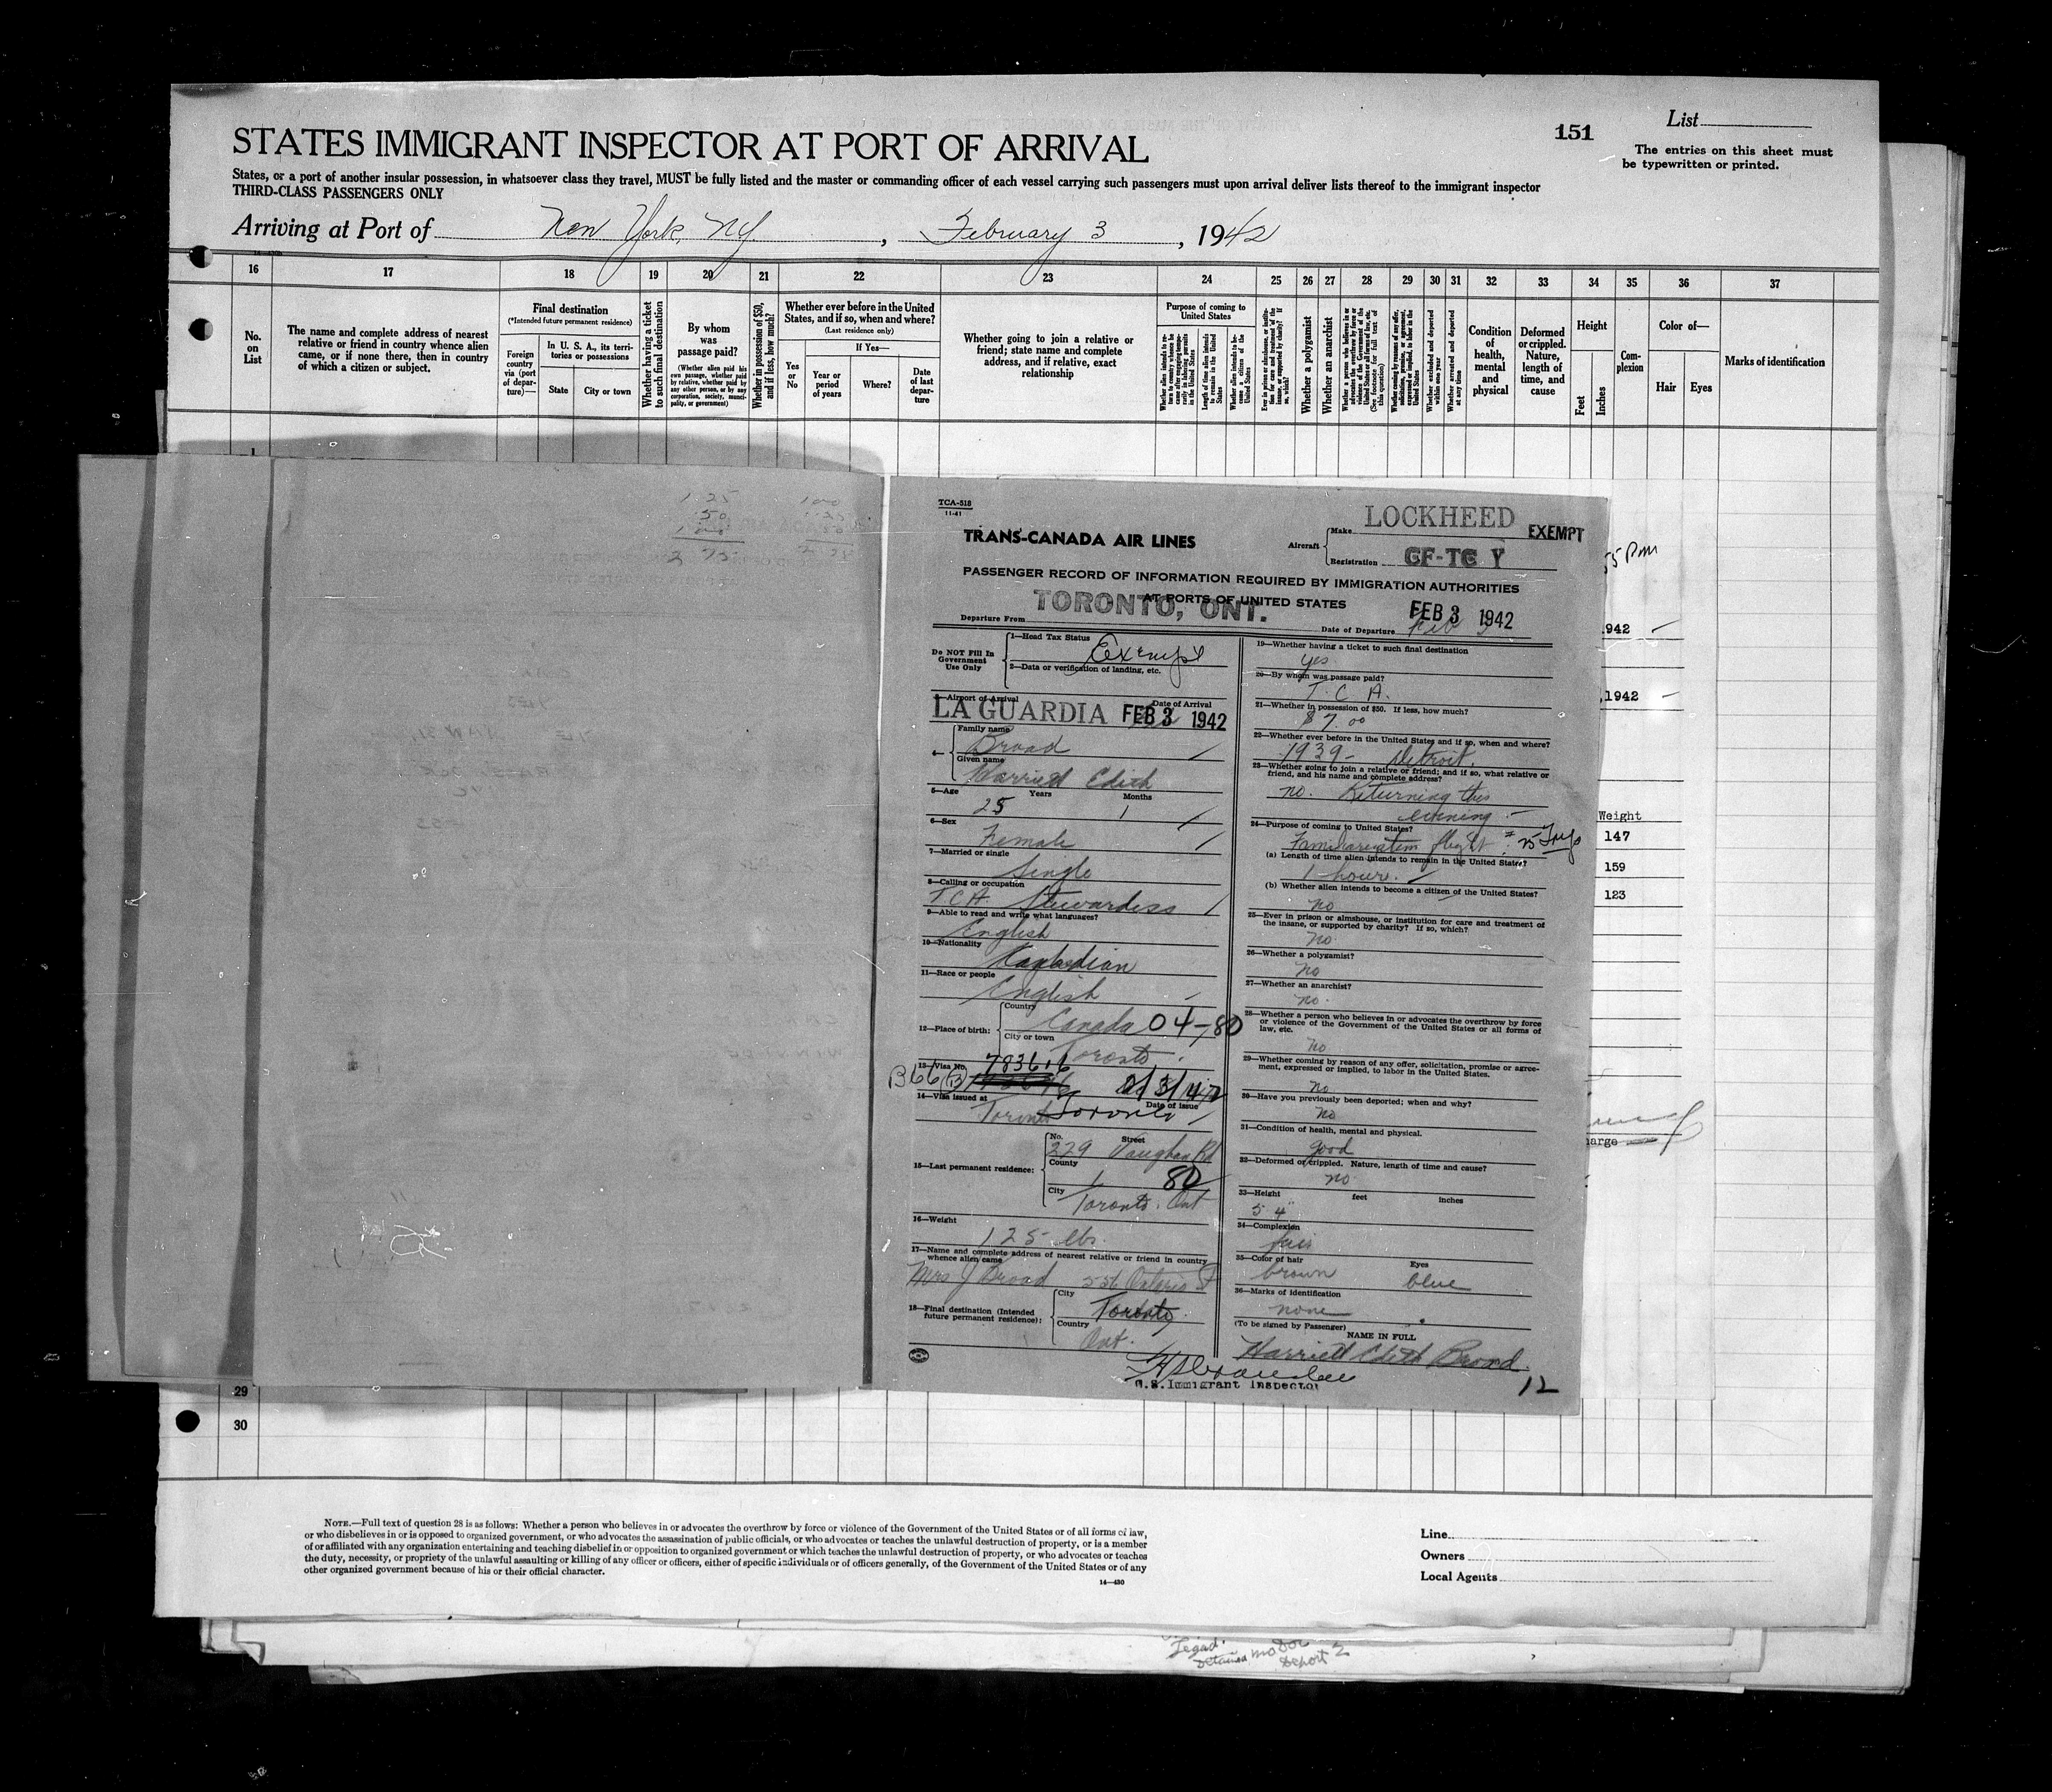 151
List
STATES IMMIGRANT INSPECTOR AT PORT OF ARRIVAL
The entries on this sheet must
be typewritten or printed.
States, or a port of another insular possession, in whatsoever class they travel, MUST be fully listed and the master or commanding officer of each vessel carrying such passengers must upon arrival deliver lists thereof to the immigrant inspector
THIRD-CLASS PASSENGERS ONLY
Arriving at Port of New York, NY, February 3, 1942
16 17 18 19 20 21 22 23 24 25 26 27 28 29 30 31 32 33 34 35 36 37
No. on List
The name and complete address of nearest
relative or friend in country whence alien
came, or if none there, then in country
of which a citizen or subject.
Final destination
(*Intended future permanent residence)
Foreign country via (port of departure)—
In U. S. A., its territories or possessions
State
City or town
Whether having a ticket to such final destination
By whom was passage paid?
(Whether alien paid his own passage, whether paid by relative, whether paid by any other person, or by any corporation, society, municipality, or government)
Whether in possession of $50, and if less, how much?
Whether ever before in the United States, and if so, when and where?
(Last residence only)
If Yes—
Yes or No
Year or period of years
Where?
Date of last departure
Whether going to join a relative or
friend; state name and complete
address, and if relative, exact
relationship
Purpose of coming to United States
Whether a polygamist
Whether an anarchist
Condition of health, mental and physical
Deformed or crippled. Nature, length of time, and cause
Height
Feet
Inches
Complexion
Color of—
Hair
Eyes
Marks of identification
TCA-518
11-41
TRANS-CANADA AIR LINES
Aircraft
Make LOCKHEED
EXEMPT
Registration CF-TC Y
PASSENGER RECORD OF INFORMATION REQUIRED BY IMMIGRATION AUTHORITIES
AT PORTS OF UNITED STATES
Departure From TORONTO, ONT.
Date of Departure FEB 3 1942
Do NOT Fill In Government Use Only
1—Head Tax Status
Exempt
2—Data or verification of landing, etc.
3—Airport of Arrival
Date of Arrival
LA GUARDIA FEB 3 1942
4— Family name
Broad
Given name
Harriett Edith
5—Age Years Months
25 1
6—Sex
Female
7—Married or single
Single
8—Calling or occupation
T.C.A. Stewardess
9—Able to read and write what languages?
English
10—Nationality
Canadian
11—Race or people
English
12—Place of birth:
Country
Canada 04-80
City or town
Toronto
13—Visa No.
B66(B) 783616 2/3/42
14—Visa issued at
Date of issue
Toronto Toronto
15—Last permanent residence:
No. Street
229 Vaughan Rd
County
80
City
Toronto. Ont
16—Weight
125 lbs.
17—Name and complete address of nearest relative or friend in country
whence alien came
Mrs J Broad 556 Ontario St
18—Final destination (Intended
future permanent residence):
City
Toronto
Country
Ont.
19—Whether having a ticket to such final destination
yes
20—By whom was passage paid?
T. C. A.
21—Whether in possession of $50. If less, how much?
$7.00
22—Whether ever before in the United States and if so, when and where?
1939 - Detroit.
23—Whether going to join a relative or friend; and if so, what relative or
friend, and his name and complete address?
no. Returning this
evening.
24—Purpose of coming to United States?
flight
(a) Length of time alien intends to remain in the United States?
1 hour.
(b) Whether alien intends to become a citizen of the United States?
no
25—Ever in prison or almshouse, or institution for care and treatment of
the insane, or supported by charity? If so, which?
No
26—Whether a polygamist?
No
27—Whether an anarchist?
no.
28—Whether a person who believes in or advocates the overthrow by force
or violence of the Government of the United States or all forms of
law, etc.
No
29—Whether coming by reason of any offer, solicitation, promise or agree-
ment, expressed or implied, to labor in the United States.
No
30—Have you previously been deported; when and why?
No
31—Condition of health, mental and physical.
good
32—Deformed or crippled. Nature, length of time and cause?
no
33—Height feet inches
5 4"
34—Complexion
fair
35—Color of hair Eyes
brown blue
36—Marks of identification
none
(To be signed by Passenger)
NAME IN FULL
Harriett Edith Broad.
U.S. Immigrant Inspector
12
942
,1942
Weight
147
159
123
29
30
NOTE.—Full text of question 28 is as follows: Whether a person who believes in or advocates the overthrow by force or violence of the Government of the United States or of all forms of law,
or who disbelieves in or is opposed to organized government, or who advocates the assassination of public officials, or who advocates or teaches the unlawful destruction of property, or is a member
of or affiliated with any organization entertaining and teaching disbelief in or opposition to organized government or which teaches the unlawful destruction of property, or who advocates or teaches
the duty, necessity, or propriety of the unlawful assaulting or killing of any officer or officers, either of specific individuals or of officers generally, of the Government of the United States or of any
other organized government because of his or their official character.
14—430
Line
Owners
Local Agents